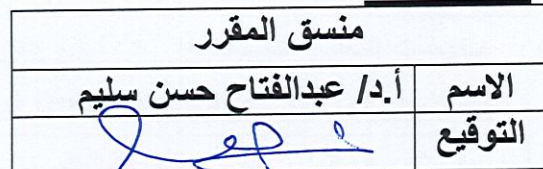 منسق المقرر
الاسم أ.د/ عبدالفتاح حسن سليم
التوقيع